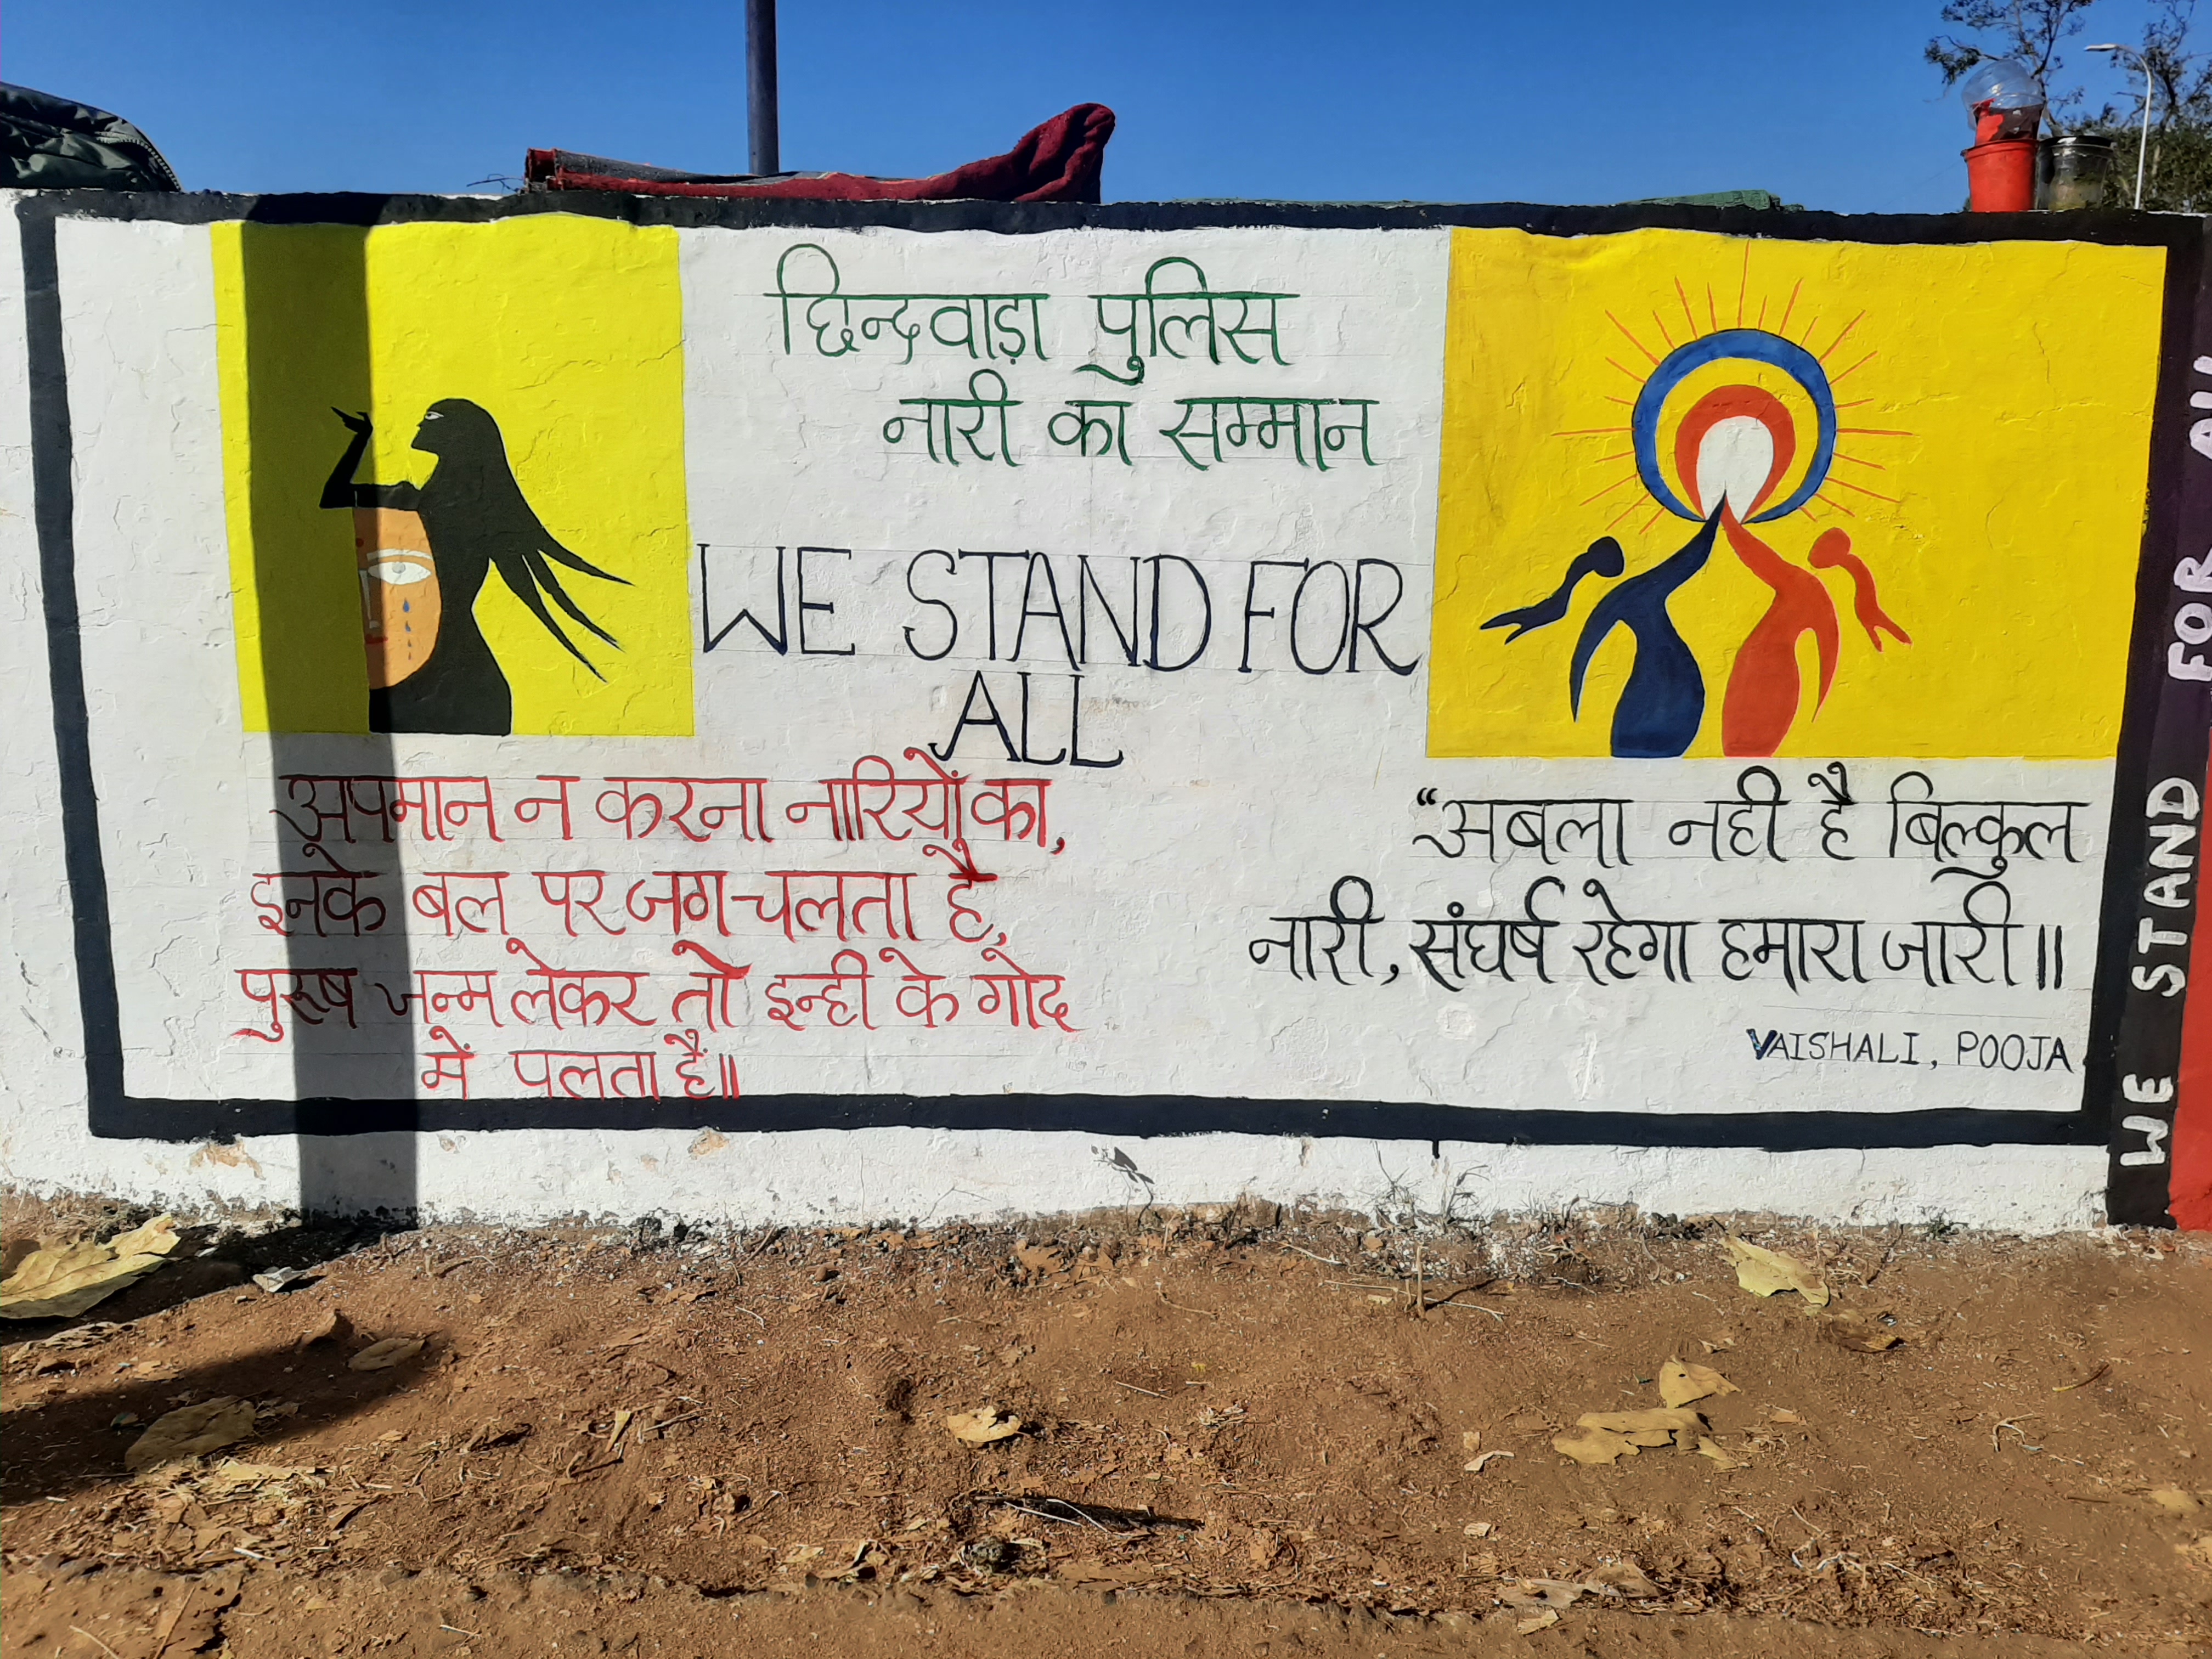 छिन्दवाड़ा पुलिस
नारी का सम्मान
WE STAND FOR
ALL
अपमान न करना नारियों का,
इनके बल पर जग चलता है,
पुरूष जन्म लेकर तो इन्ही के गोद
में पलता है॥
“अबला नही है बिल्कुल
नारी, संघर्ष रहेगा हमारा जारी॥
VAISHALI, POOJA
WE STAND FOR ALL